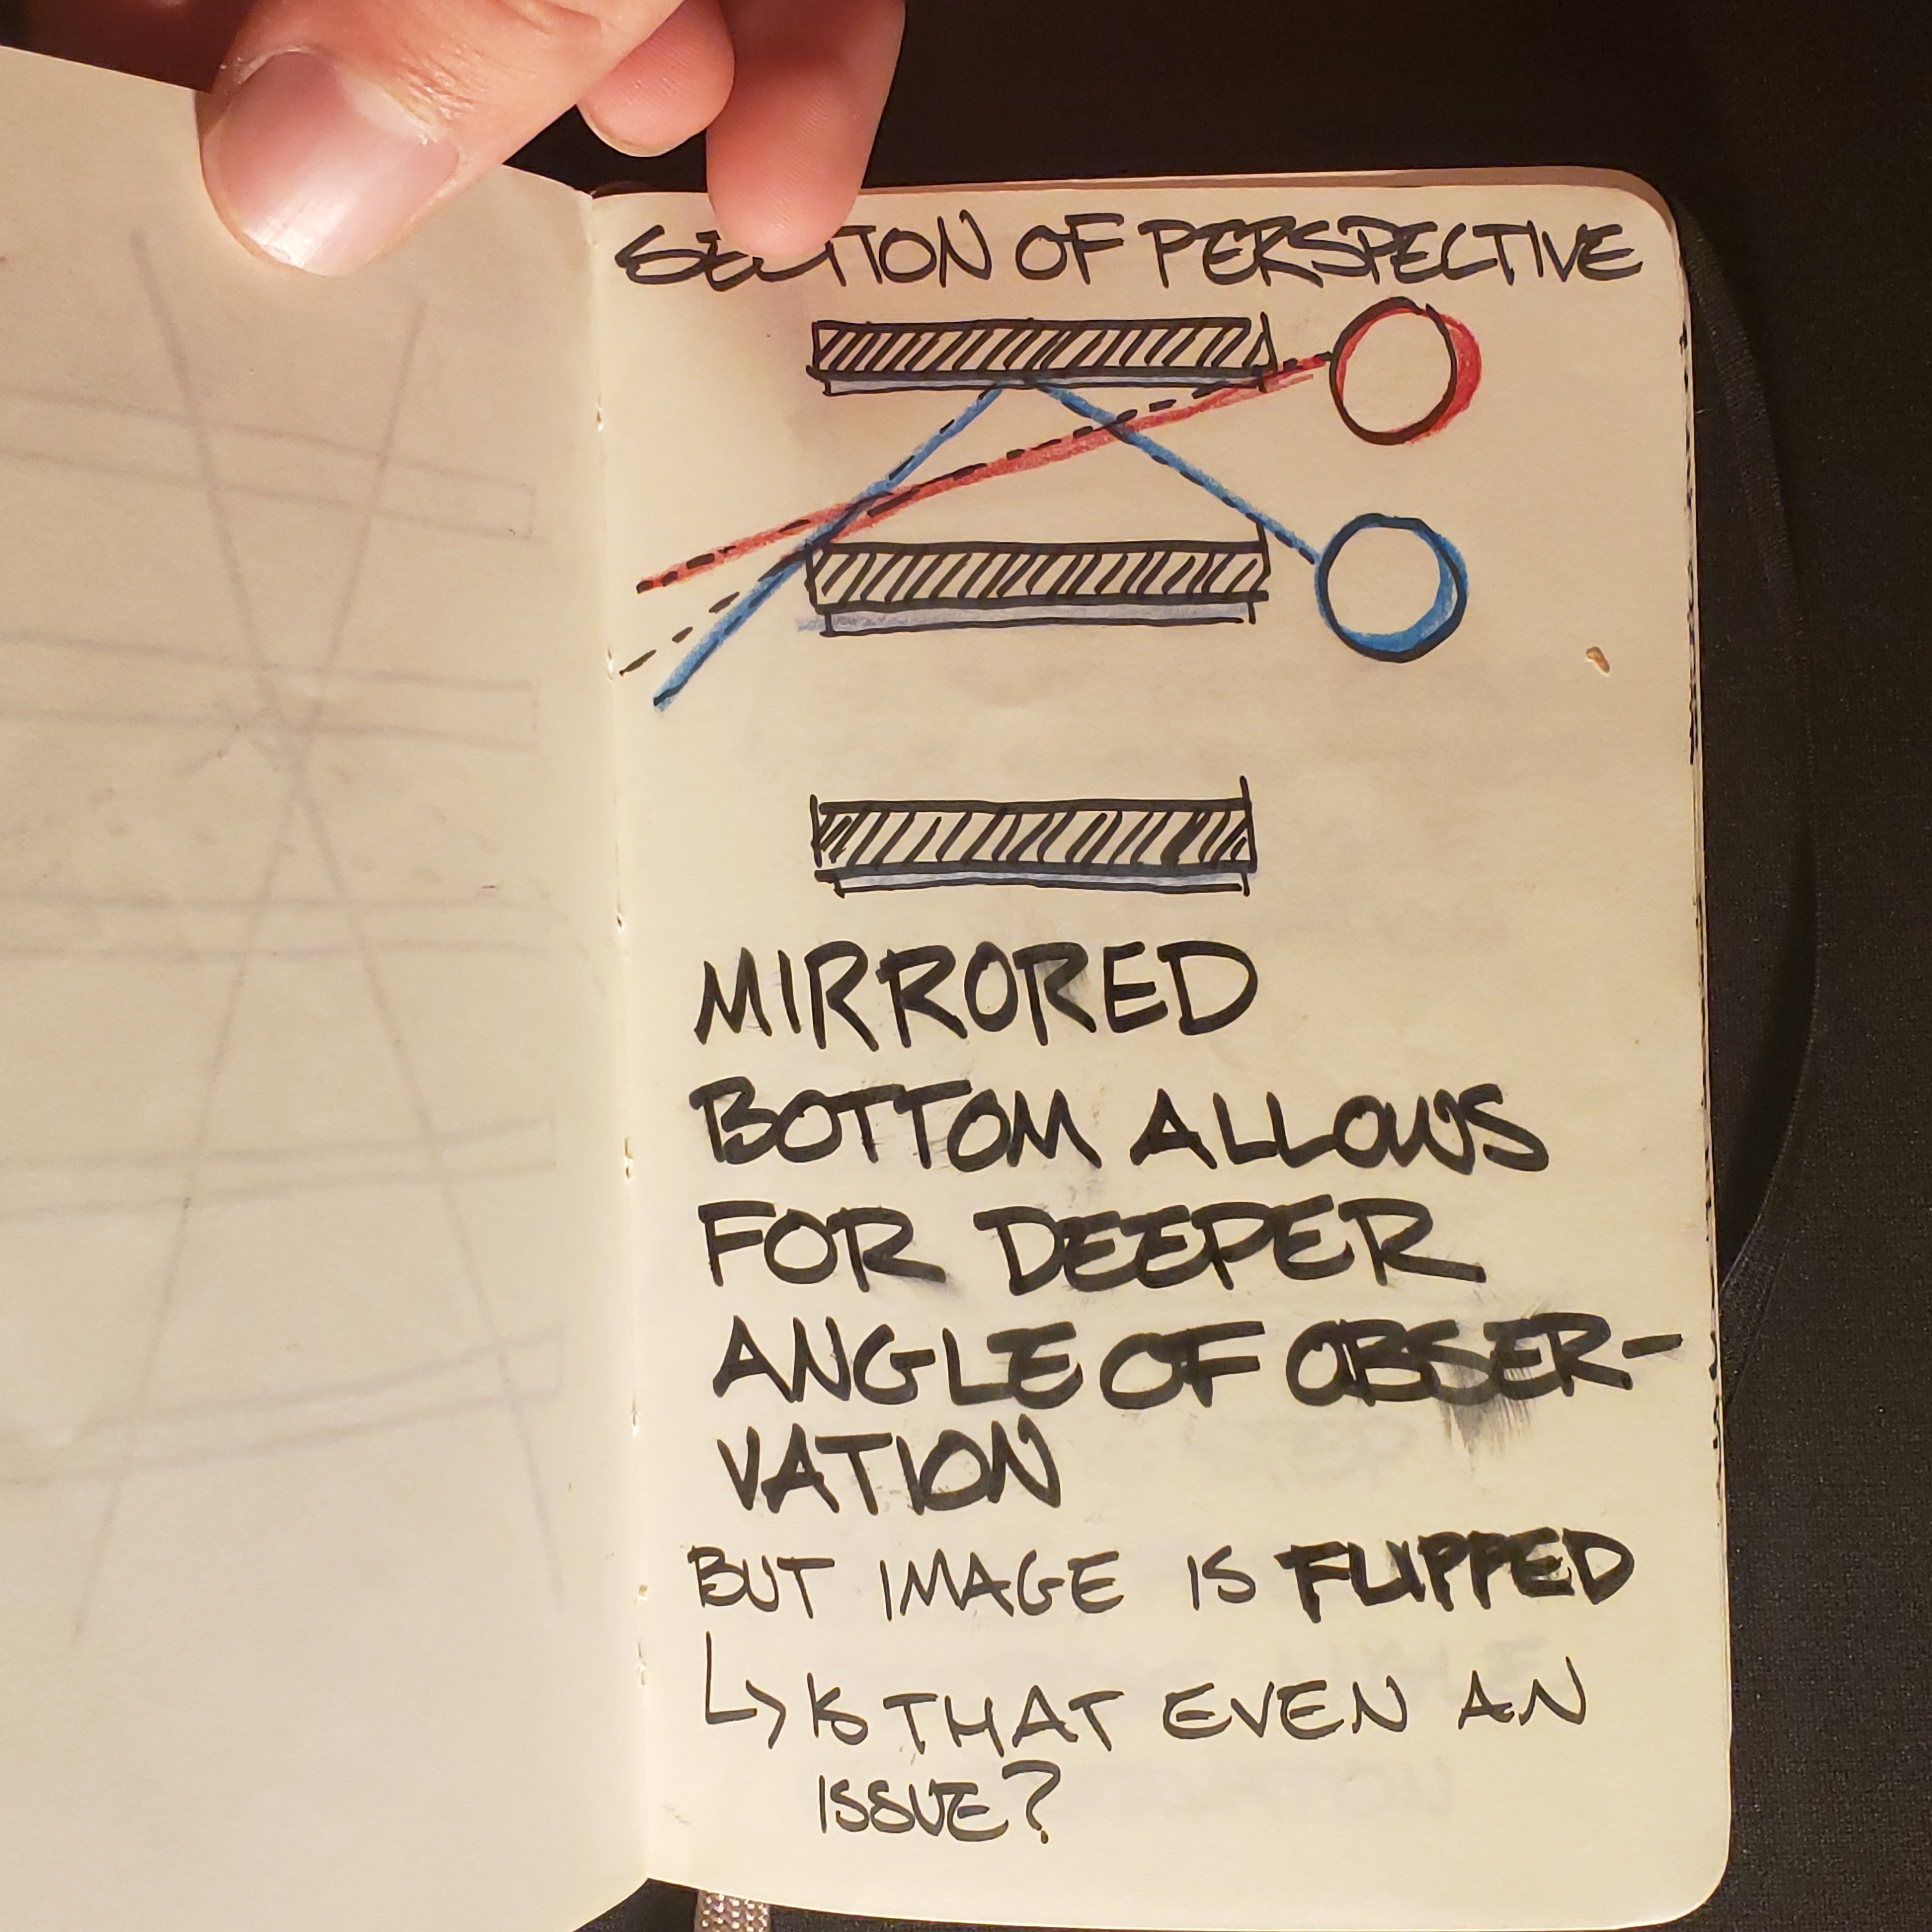 SECTION OF PERSPECTIVE
MIRRORED
BOTTOM ALLOWS
FOR DEEPER
ANGLE OF OBSER-
VATION
BUT IMAGE IS FLIPPED
↳ IS THAT EVEN AN
ISSUE?